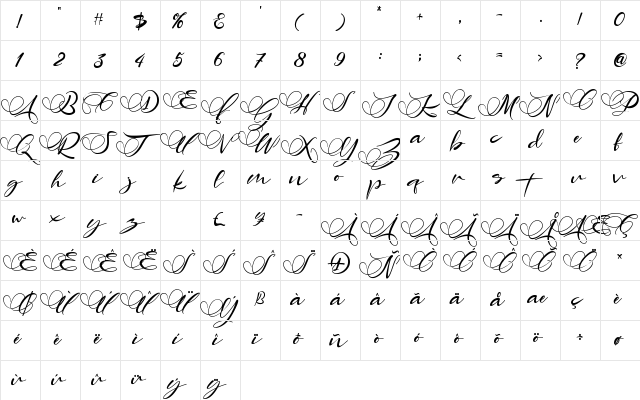 ! " # $ % & ' ( ) * + , - . / 0
1 2 3 4 5 6 7 8 9 : ; < = > ? @
A B C D E F G H I J K L M N O P
Q R S T U V W X Y Z a b c d e f
g h i j k l m n o p q r s t u v
w x y z £ ¥ - À Á Â Ã Ä Å Æ Ç
È É Ê Ë Ì Í Î Ï Ð Ñ Ò Ó Ô Õ Ö ×
Ø Ù Ú Û Ü Ý ß à á â ã ä å æ ç è
é ê ë ì í î ï ð ñ ò ó ô õ ö ÷ ø
ù ú û ü ý ÿ